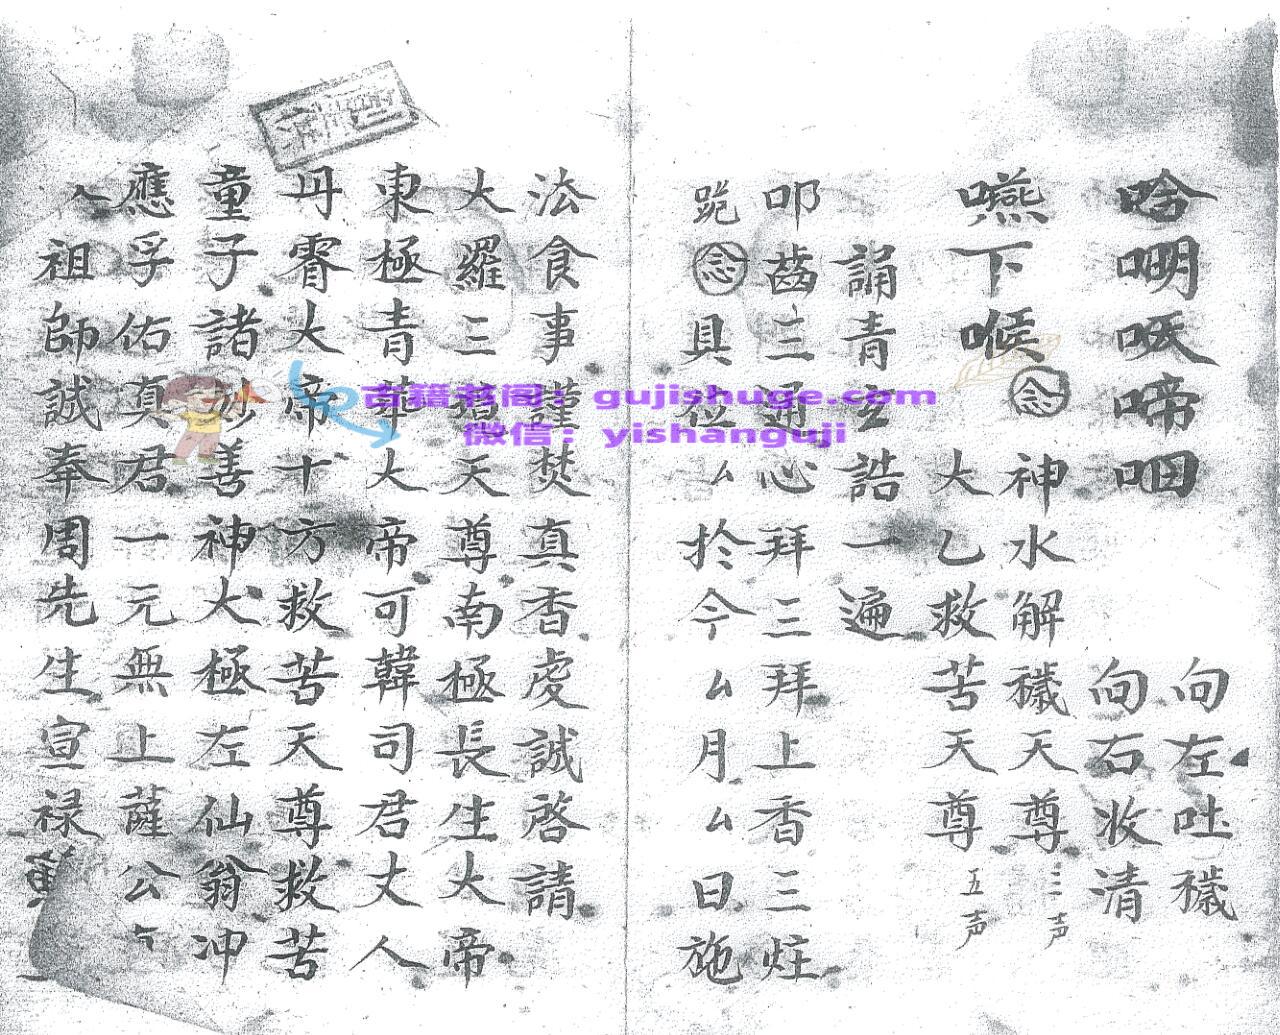 唅 𠵇 㕭 啼 呬
向左吐穢
向右收清
嚥下喉
念
神水解穢天尊 三声
大乙救苦天尊 五声
誦青玄誥一遍
叩齒三通心拜三拜上香三炷
跪念具位厶於今厶月厶日施
法食事謹焚真香虔誠啓請
大羅三蕴天尊南極長生大帝
東極青華大帝可韓司君丈人
丹霄大帝十方救苦天尊救苦
童子諸妙善神大極左仙翁冲
應孚佑真君一元無上薩公
祖師誠奉周先生宣禄
古籍书阁：gujishuge.com
微信：yishanguji